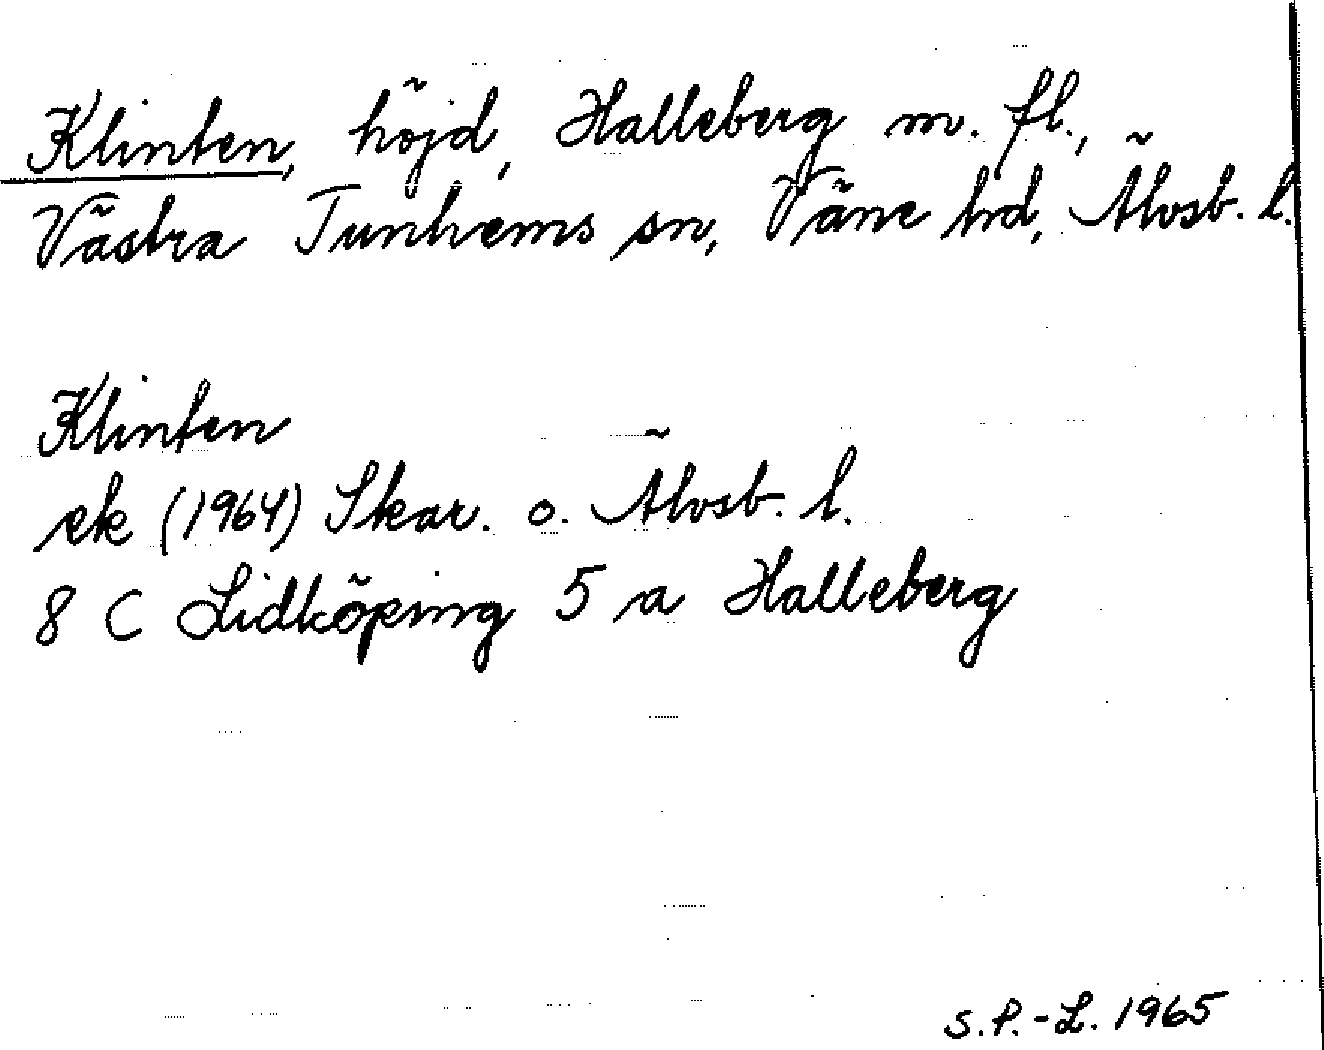 Klinten, höjd, Halleberg m. fl.,
Västra Tunhems sn, Väne hd, Älvsb. l.
Klinten
ek (1964) Skar. o. Älvsb. l.
8 C Lidköping 5 a Halleberg
S.P.-L. 1965